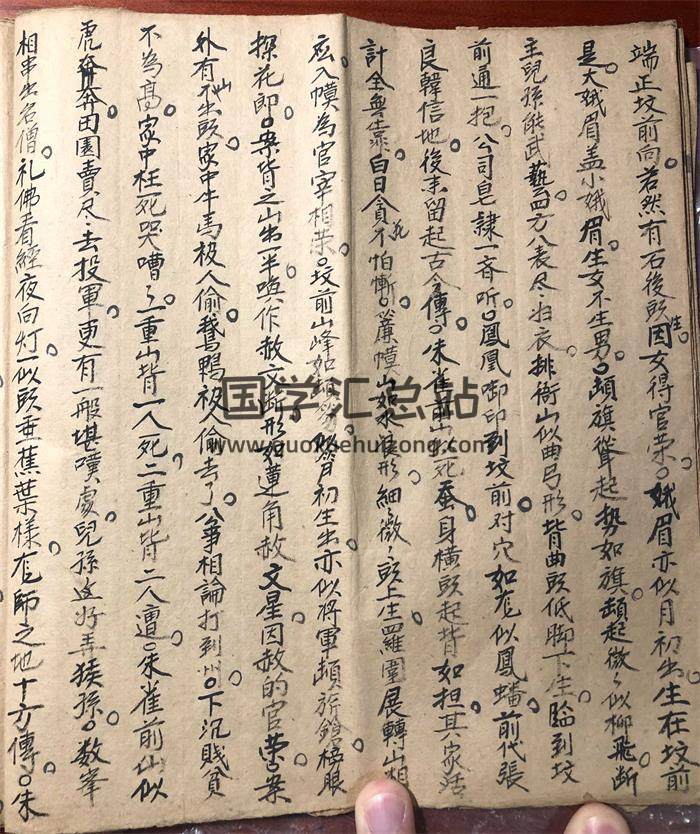 端正坟前向若然有石後頭生因女得官荣娥眉亦似月初出生在坟前
是大娥眉盖小娥眉生女不生男頓旗聳起势如旗頓起微々似柳飛断
主兒孫能武藝四方八表尽归衣排衙山似曲弓形背曲頭低脚下生臨到坟
前通一抱公司皂隸一斉听鳳凰啣印到坟前对穴如龙似鳳蟠前代張
良韓信地後来留起古今傳朱雀前山似死蚕身横頭起背如担其家活
計全無靠白日貪花不怕慚簾幙山如水浪形細々微々頭上生羅圍展轉山相
应入幙為官宰相荣坟前山峰如初生出亦似将軍頓旂鎗榜眼
探花郎案皆之山出一半喚作赦文断形死運角赦文星因赦的官荣案
外有山不出頭家中牛馬被人偷鵝鴨被人偷去了公事相論打到州下沉賤貧
不為髙家中枉死哭嘈々一重山背一人死二重山背二人遭朱雀前山似
虎奔奔田園賣尽去投軍更有一般堪嘆處兒孫这好弄猿孫数峯
相串出名僧礼佛看經夜向灯一似頭垂蕉葉樣龙師之地十方傳朱
国学汇总站
www.guoxuehuizong.com